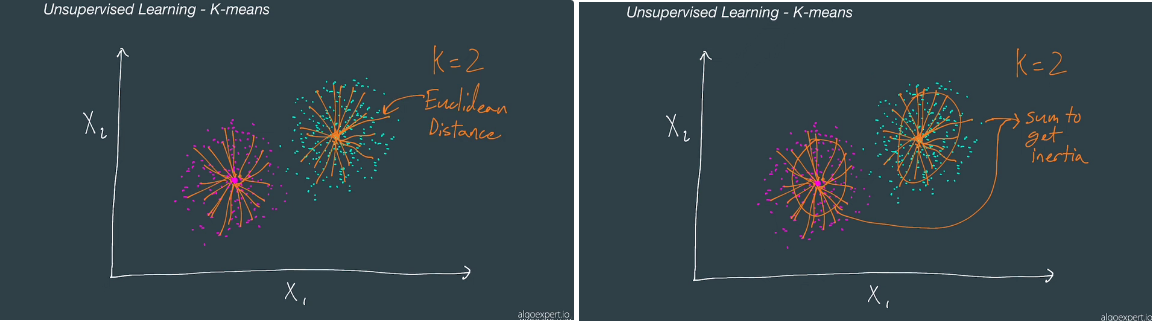 Unsupervised Learning - K-means
K=2
Euclidean
Distance
X2
X1
algoexpert.io
Unsupervised Learning - K-means
K=2
sum to
get
inertia
X2
X1
algoexpert.io